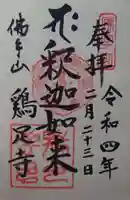 奉拝
令和四年
二月二十三日
釈迦如来
佛手山
鶏足寺